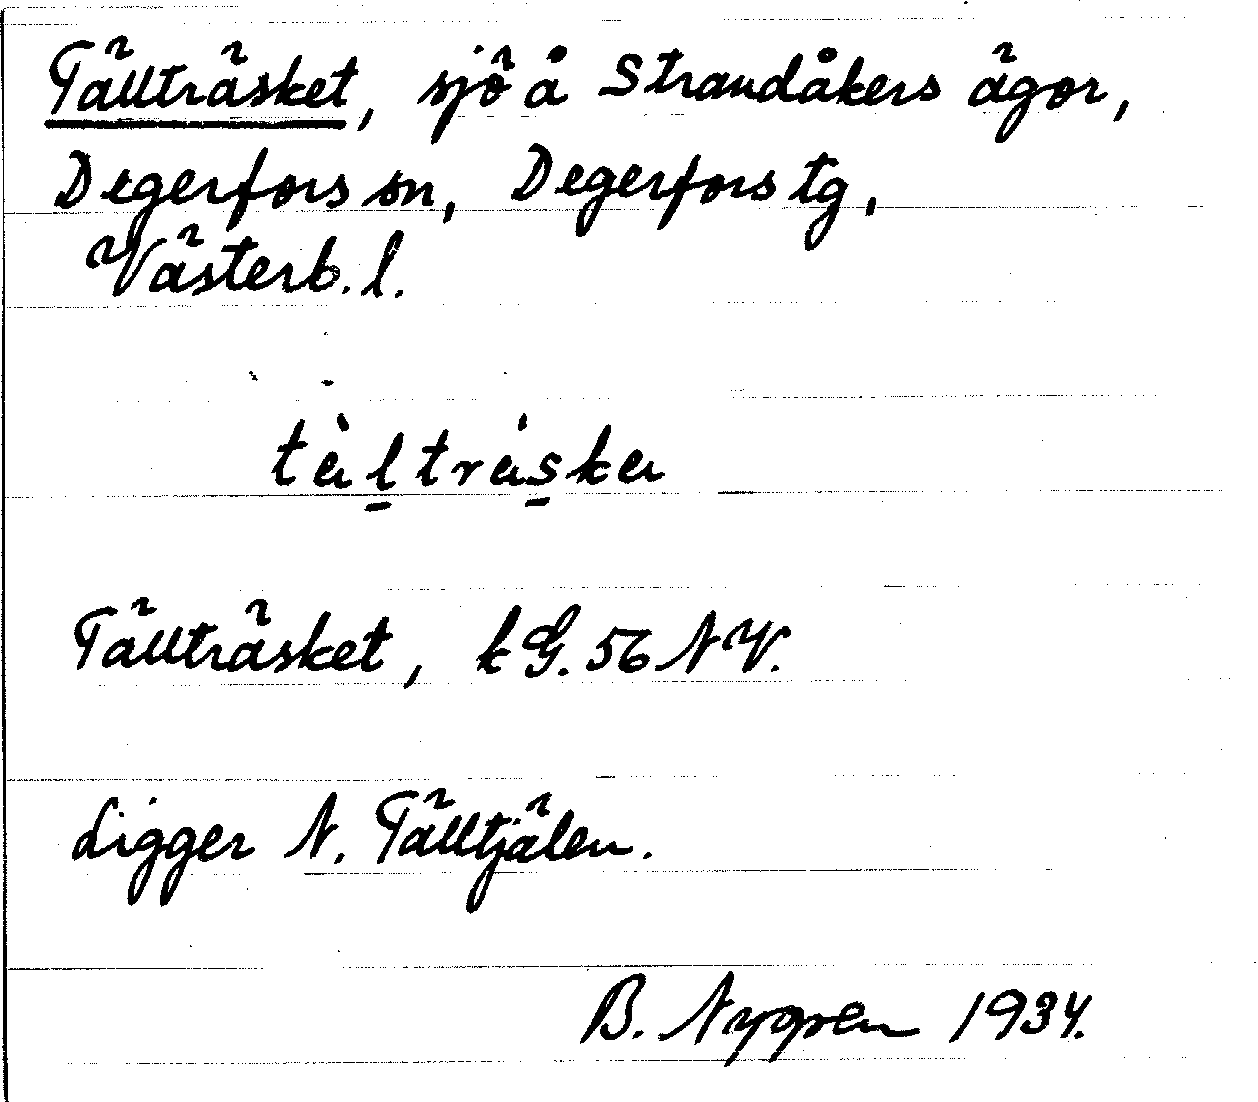 Tällträsket, sjö å Strandåkers ägor,
Degerfors sn, Degerfors tg,
Västerb. l.
tältträska
Tällträsket, kG. 56 NV.
Ligger N. Tälltjälen.
B. Nygren 1934.